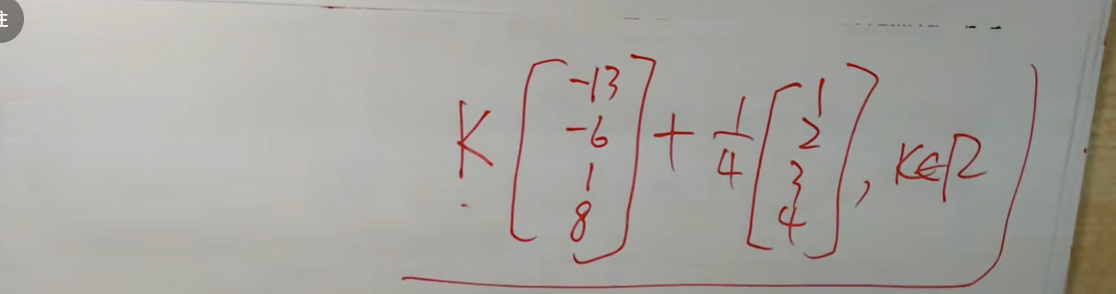 注
K [-13 -6 1 8] + 1/4 [1 2 3 4], K∈R